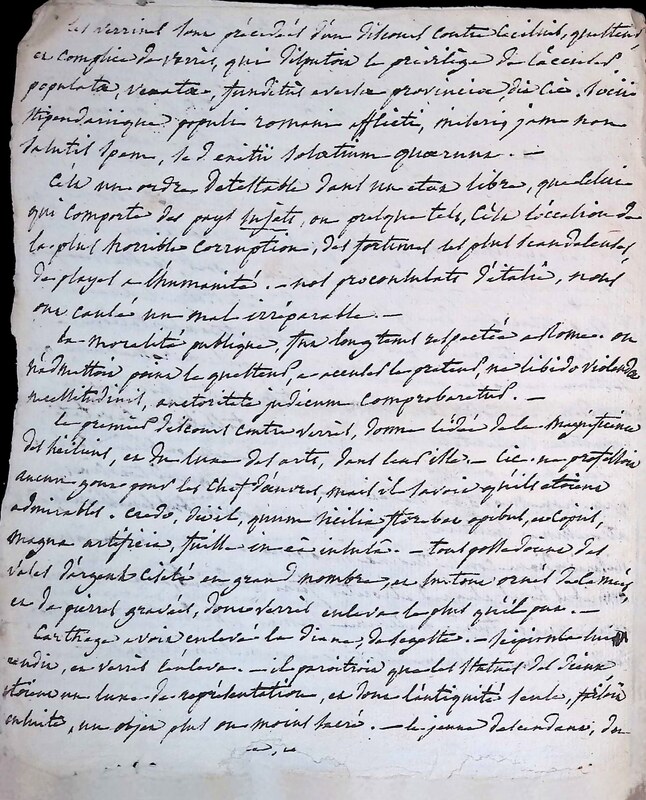 les verrines sont précédés d'un discours contre Cecilius, questeur,
et complice de verrès, qui disputoit le privilège de l'accuser
populatæ, vexatæ, funditùs eversæ provinciæ, dit Cic. Socii
stipendiariique populi romani afflicti, miseri, jam non
salutis spem, sed exitii solatium quærunt. —
C'est un ordre détestable dans un etat libre, que celui
qui comporte des pays sujets, ou presque tels, c'est l'occasion de
la plus horrible corruption, des fortunes les plus scandaleuses,
de playes a l'humanité. — nos proconsulats d'italie, nous
ont causé un mal irréparable. —
La moralité publique, fut longtems respectée a Rome. on
n'admettoit point le questeur, a accuser le preteur, ne libido violandæ
necessitudinis, auctoritate judicum comprobaretur. —
le premier discours contre verrès, donne l'idée de la magnificence
des siciliens, et du luxe des arts, dans leur isle. — Cic. ne professoit
aucun gout pour les chef d'œuvres, mais il savoit qu'ils etoient
admirables. credo, dit-il, quum sicilia florebat opibus, et copiis,
magna artificia, fuisse in eâ insulâ. — tous possedoient des
vases d'argent ciselé en grand nombre, et surtout ornés de
et de pierres gravées, dont verrès enleva le plus qu'il put. —
Carthage avoit enlevé la diane, de segeste. — Scipion la leur
rendit, et verrès l'enleva. — il paroitroit que les statues des dieux
etoient un luxe de représentation, et dont l'antiquité seule, faisoit
ensuite, un objet plus ou moins sacré. — le jeune descendant, du